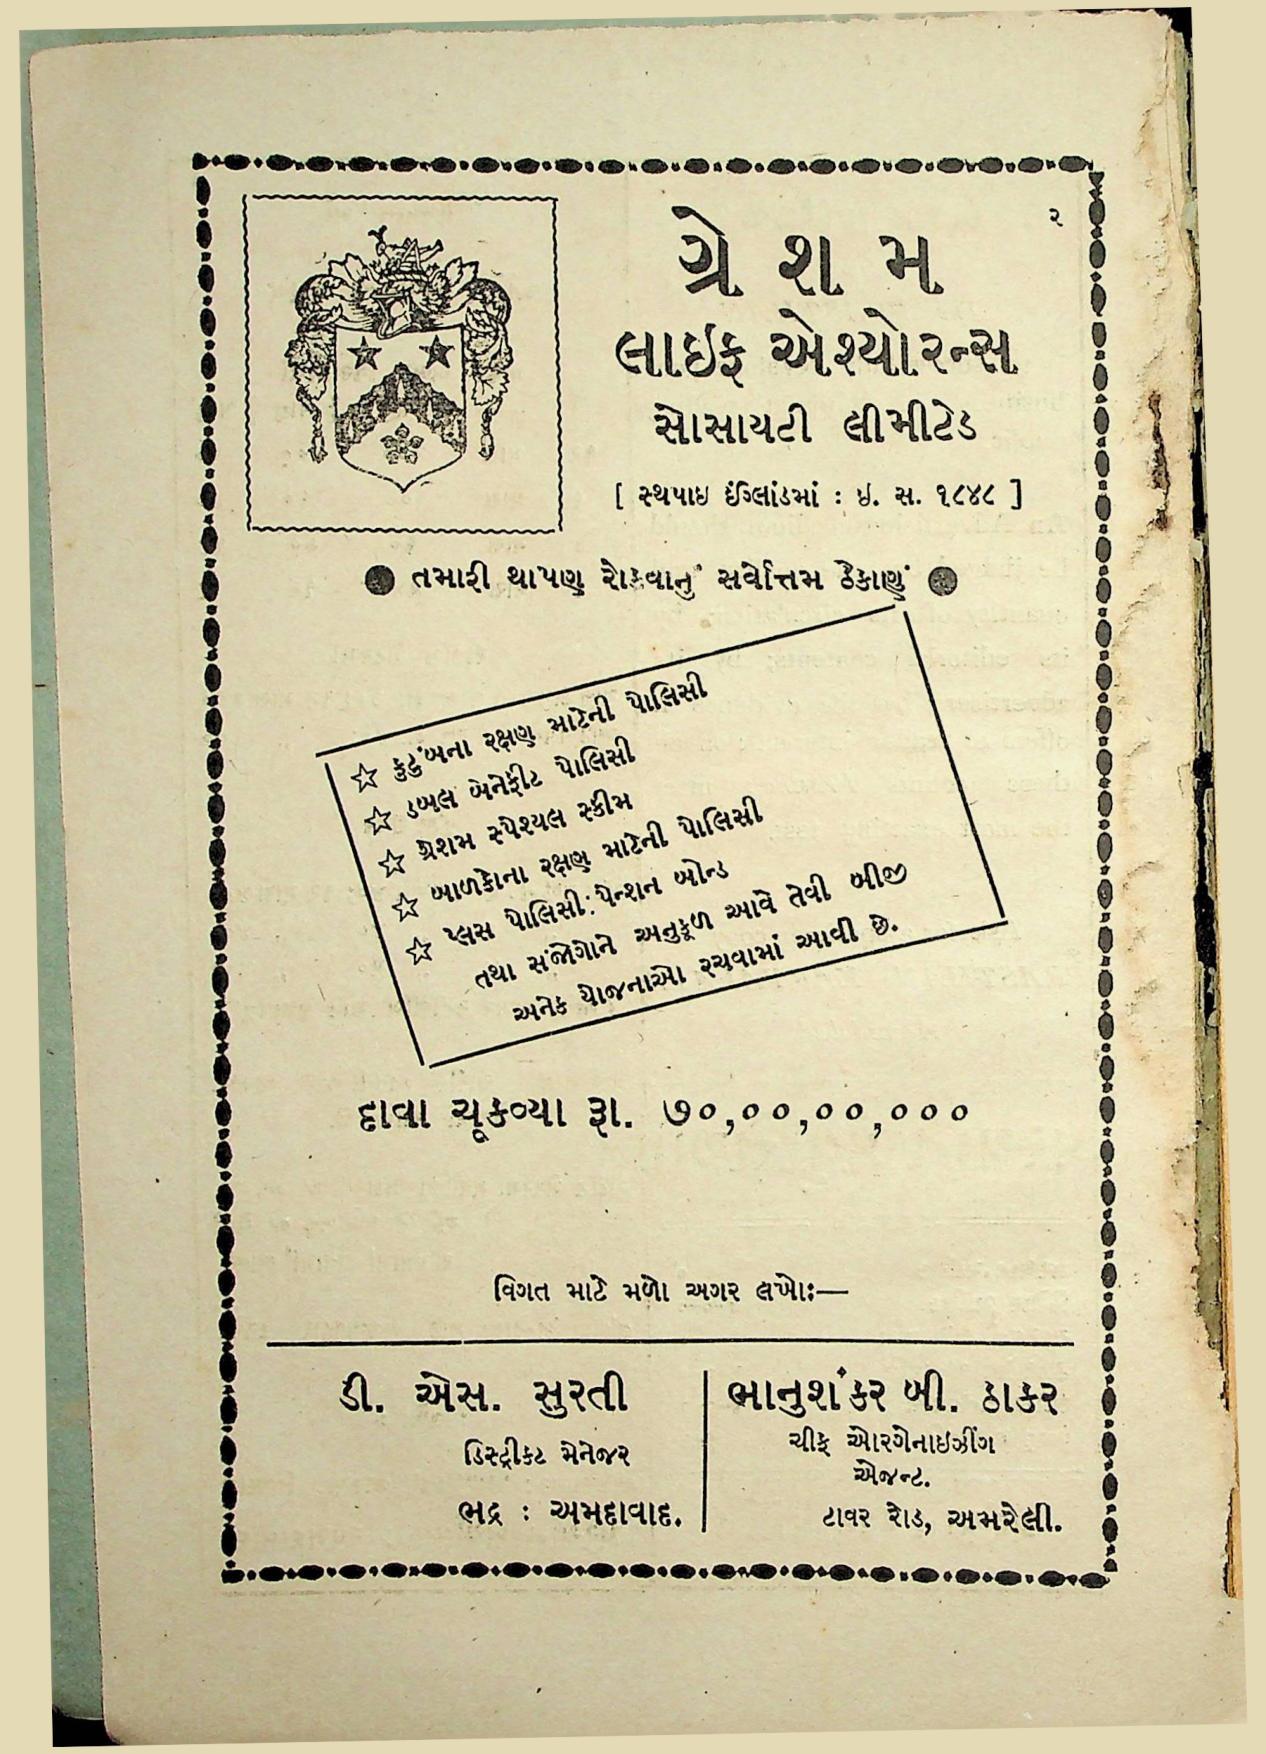 ૨
ગ્રેશમ
લાઇફ એશ્યોરન્સ
સોસાયટી લીમીટેડ
[ સ્થપાઇ ઈંગ્લિાંડમાં : ઇ. સ. ૧૮૪૮ ]
● તમારી થાપણ રોકવાનું સર્વોત્તમ ઠેકાણું ●
☆ કુટુંબના રક્ષણ માટેની પોલિસી
☆ ડબલ બેનેફીટ પોલિસી
☆ ગ્રેશમ સ્પેશ્યલ સ્કીમ
☆ બાળકોના રક્ષણ માટેની પોલિસી
☆ પ્લસ પોલિસી: પેન્શન બોન્ડ
તથા સંજોગોને અનુકૂળ આવે તેવી બીજી
અનેક યોજનાઓ રચવામાં આવી છે.
દાવા ચૂકવ્યા રૂા. ૭૦,૦૦,૦૦,૦૦૦
વિગત માટે મળો અગર લખોઃ—
ડી. એસ. સુરતી
ડિસ્ટ્રીકટ મેનેજર
ભદ્ર : અમદાવાદ.
ભાનુશંકર બી. ઠાકર
ચીફ ઓરગેનાઇઝીંગ
એજન્ટ.
ટાવર રોડ, અમરેલી.